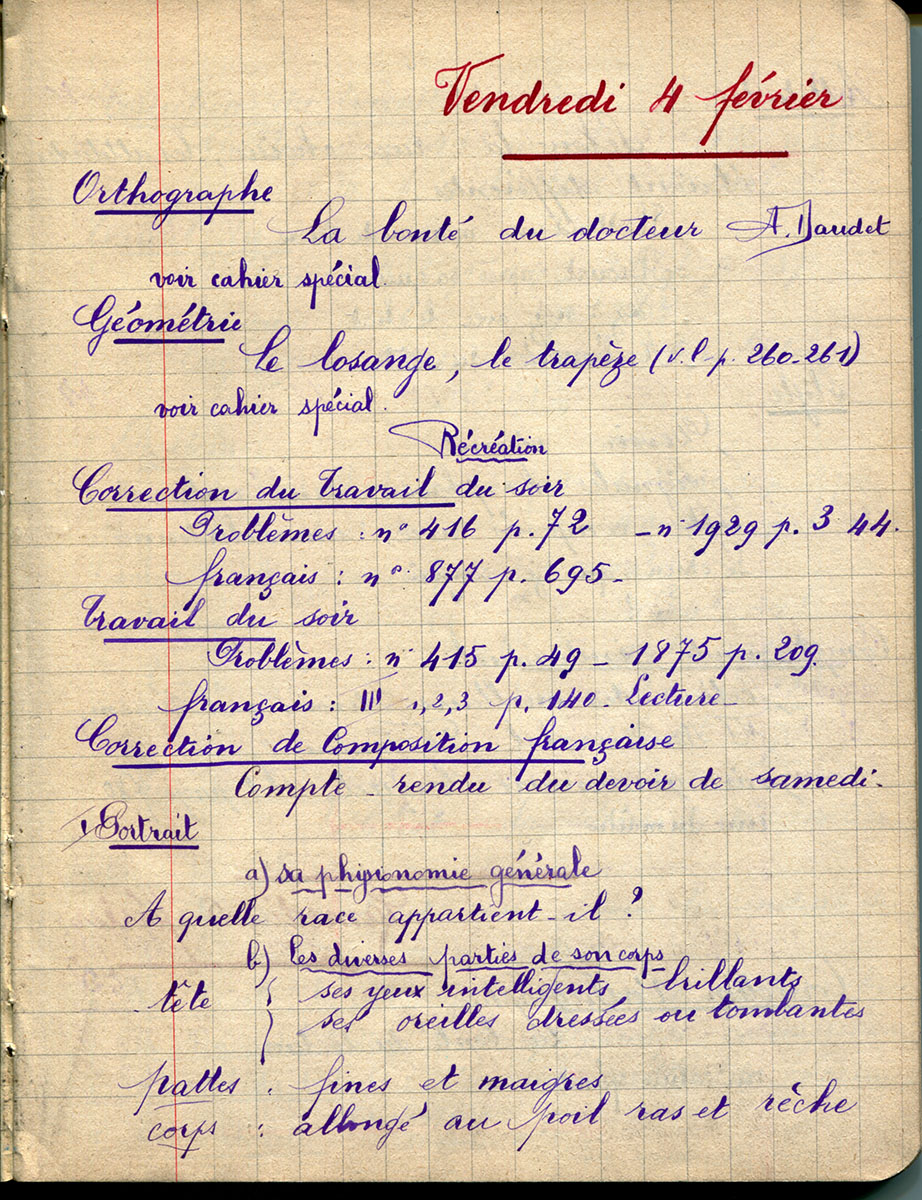 Vendredi 4 février
Orthographe
La bonté du docteur A. Daudet
voir cahier spécial.
Géométrie
Le losange, le trapèze (v. l p. 260-261)
voir cahier spécial.
Récréation
Correction du Travail du soir
Problèmes : n° 416 p. 72 - n° 1929 p. 344.
français : n° 877 p. 695-
Travail du soir
Problèmes : n° 415 p. 49 - 1875 p. 209.
français : III 1,2,3 p. 140. Lecture-
Correction de Composition française
Compte-rendu du devoir de samedi.
I Portrait
a) sa physionomie générale
A quelle race appartient-il ?
b) Les diverses parties de son corps
tête { ses yeux intelligents brillants
ses oreilles dressées ou tombantes
pattes : fines et maigres
corps : allongé au poil ras et rêche